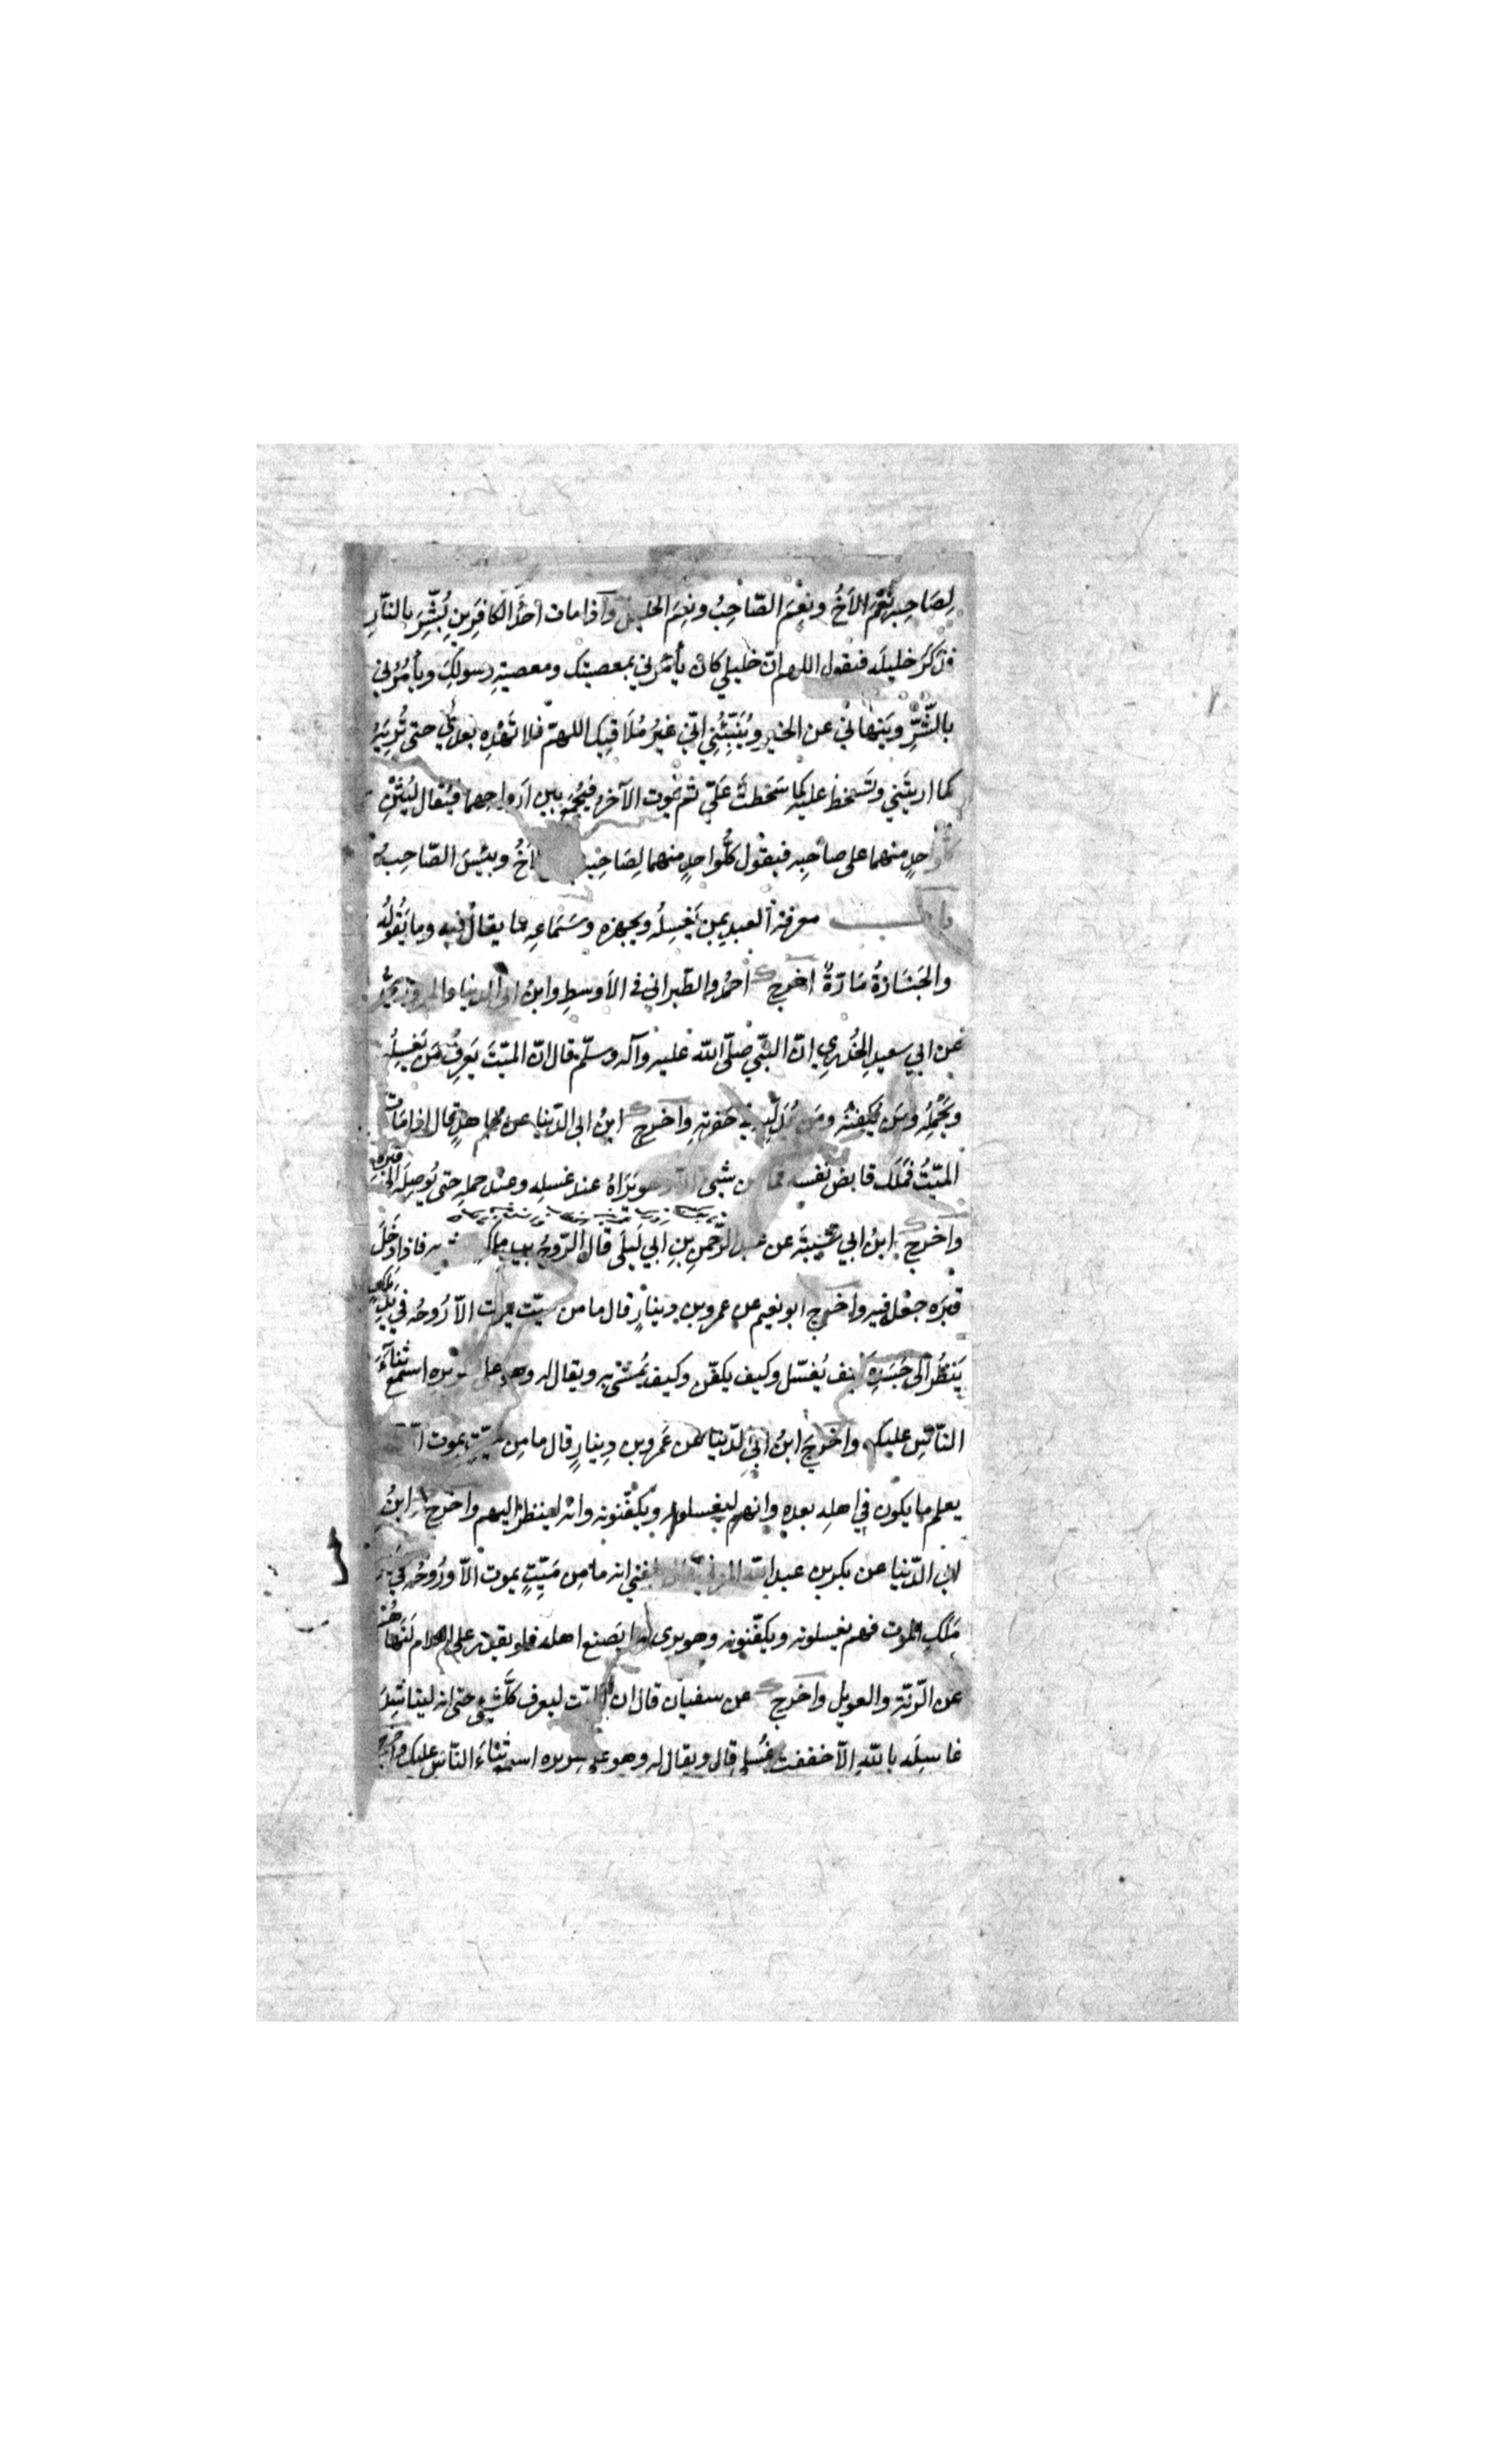 لِصَاحِبِهِ نِعْمَ الاَخُ ونِعْمَ الصّاحِبُ ونِعِمَ الخليل وآذا مات أحدُ الكافِرَينِ بُشِّرَ بالنّارِ
فذكَرُ خليلَه فيقول اللهم انّ خليلي كان يأمُرُني بمعصيتك ومعصيةِ رسولِكَ ويأمُرُني
بالشّرِّ ويَنهاني عن الخير ويُنَبِّئُنِي انّي غيرُ مُلَاقِيك اللهمّ فلا تَهْدِه بعدي حتى تُرِيَهُ
كما اريتَني وتَسخط عليه كما سَخطتَ عَلَيّ ثم يموت الآخر فيُجْمَع بين اَرواحِهما فيُقال لِيُثْنِ
كلّ واحدٍ منهما على صاحِبِه فيقول كُلُّ واحدٍ منهما لِصَاحِبِه اَخُ وبِئسَ الصّاحِبُ
باب معرفة العبد بمن يَغسِلُه ويجهزه وسَمَاعِه ما يقال فيه وما يَقُولُه
والجَنَازةُ مَارّةً اخرج احمدُ والطّبراني في الاَوسطِ وابنُ ابي الدنيا والمروزي
عن ابي سعيدِ الخُدرِي انّ النبّي صلّى الله عليه وآله وسلّم قال انّ الميّتَ يَعرِفُ مَن يَغسِلُه
ويَحمِلُه ومَن يُكفِّنُه ومَن يُدَلِّيه في حَفرته وآخرج ابنُ ابى الدّنيا عن مجاهدٍ قال اذا مَات
الميّتُ فمَلَك قابِض نفسه فما من شئ الا وهو يَرَاهُ عند غسلِه وعند حملِه حتى يُوصِلَه الى قبره
واخرج ابنُ ابي شيبة عن عبد الرّحمنِ بنِ ابي لَيلَى قال الرّوحُ بيد ملكٍ به فاذا دَخَلَ
قبرَه جعل فيه واخرج ابو نعيم عن عمرو بن دينارٍ قال ما من ميّت يموت الاّ رُوحُه في يَدِ مَلَكٍ
يَنظُرُ الى جَسَدِه كيف يُغسّل وكيف يكفّن وكيف يُمشَى به ويقال له وهو على سريره اسمع ثناءَ
النّاسِ عليك واَخرجَ ابنُ ابي الدّنيا عن عَمرو بن دِينارٍ قال ما مِن ميّتٍ يموت اّ
يعلم ما يكون في اهلِه بعده وانهم ليغسلونه ويُكفّنونه وانّه لينظرُ اليهم واخرج ابنُ
ابى الدّنيا عن بكر بن عبد الله المزني قال بلغني انه ما مِن مَيِّتٍ يموت الاّ ورُوحُه في يد
مَلَكِ الموت فهم يغسلونه ويكفّنونه وهو يرى ما يَصنع اهله فلو يقدر على الكلام لَنَهَاهُم
عن الرّنّة والعويل واخرج عن سفيان قال ان الميّت ليعرف كلّ شئٍ حتى انه ليناشِدُ
غاسِلَه باللّهِ الاّ خففت غُسلي قال ويقال له وهو على سريره اسمع ثناءَ النّاسِ عليك واخرج